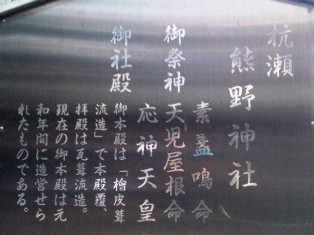 杭瀬
熊野神社
素盞鳴命
御祭神 天児屋根命
応神天皇
御社殿 御本殿は「檜皮葺
流造」で本殿覆、
拝殿は瓦葺流造。
現在の御本殿は元
和年間に造営せら
れたものである。